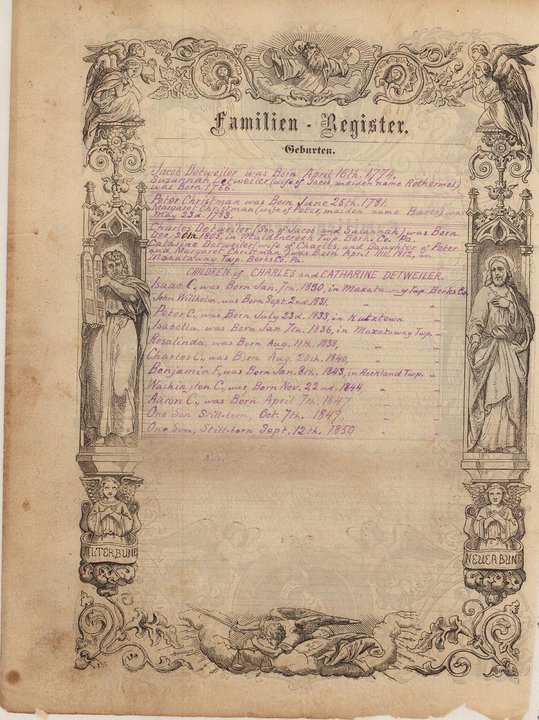 Familien - Register.
Geburten.
Jacob Detweiler was Born April 16th. 1774.
Susannah Detweiler (wife of Jacob, maiden name Rothermel)
was Born 1766.
Peter Christman was Born June 25th. 1781.
Margaret Christman (wife of Peter, maiden name Barto) was
May 23d. 1783.
Charles Detweiler (Son of Jacob and Susannah) was Born
6th 1805, in Maidencreek Twp. Berks Co. Pa.
Catharine Detweiler, wife of Charles, and Daughter of Peter
and Margaret Christman) was Born April 1812, in
Maxatawny Twp. Berks Co. Pa.
CHILDREN of CHARLES and CATHARINE DETWEILER.
Isaac C, was Born Jan. 7th. 1830, in Maxatawny Twp. Berks Co.
John Willholm, was Born Sept. 2nd. 1831. "
Peter C, was Born July 23d. 1833, in Kutztown "
Isabella was Born Jan. 7th. 1836, in Maxatawny Twp. "
Rosalinda, was Born Aug. 11th. 1838, " "
Charles C, was Born Aug. 20th. 1840, " "
Benjamin F, was Born Jan. 8th. 1843, in Rockland Twp. "
Washington C, was Born Nov. 22nd. 1844 " "
Aaron C., was Born April 7th. 1847 " "
One Son Still-born, Oct. 7th. 1849 " "
One Son, Still-born Sept. 12th. 1850 " "
ALTER BUND
NEUER BUND